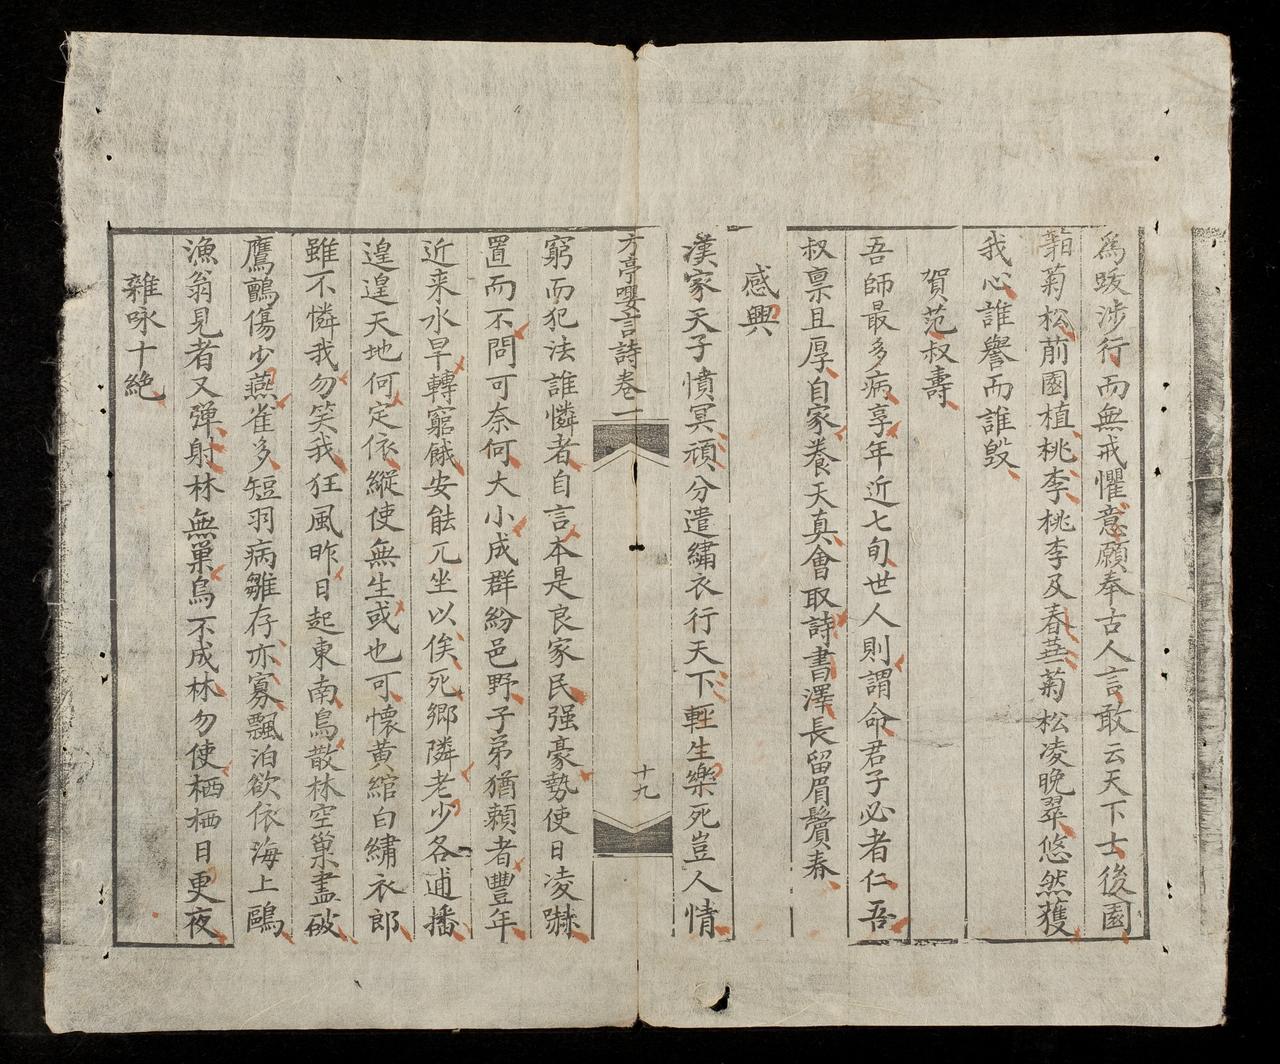 爲跋涉行而無戒懼意願奉古人言敢云天下士後園
菊松前園植桃李桃李及春蕪菊松凌晚翠悠然獲
我心誰譽而誰毀
賀范叔壽
吾師最多病享年近七旬世人則謂命君子必者仁吾
叔禀且厚自家養天真會取詩書澤長留眉鬢春
感興
漢家天子憤冥頑分遣繡衣行天下輕生樂死豈人情
方亭嬰言詩卷一
十九
窮而犯法誰憐者自言本是良家民强豪勢使日凌
置而不問可奈何大小成群紛邑野子弟猶賴者豐年
近来水旱轉窮餓安能兀坐以俟死鄉隣老少各逋播
遑遑天地何定依縱使無生或也可懷黃綰白繡衣郎
雖不憐我勿笑我狂風昨日起東南鳥散林空巢盡破
鷹鸇傷少燕雀多短羽病雛存亦寡飄泊欲依海上鷗
漁翁見者又弹射林無巢鳥不成林勿使栖栖日更夜
雜咏十絶